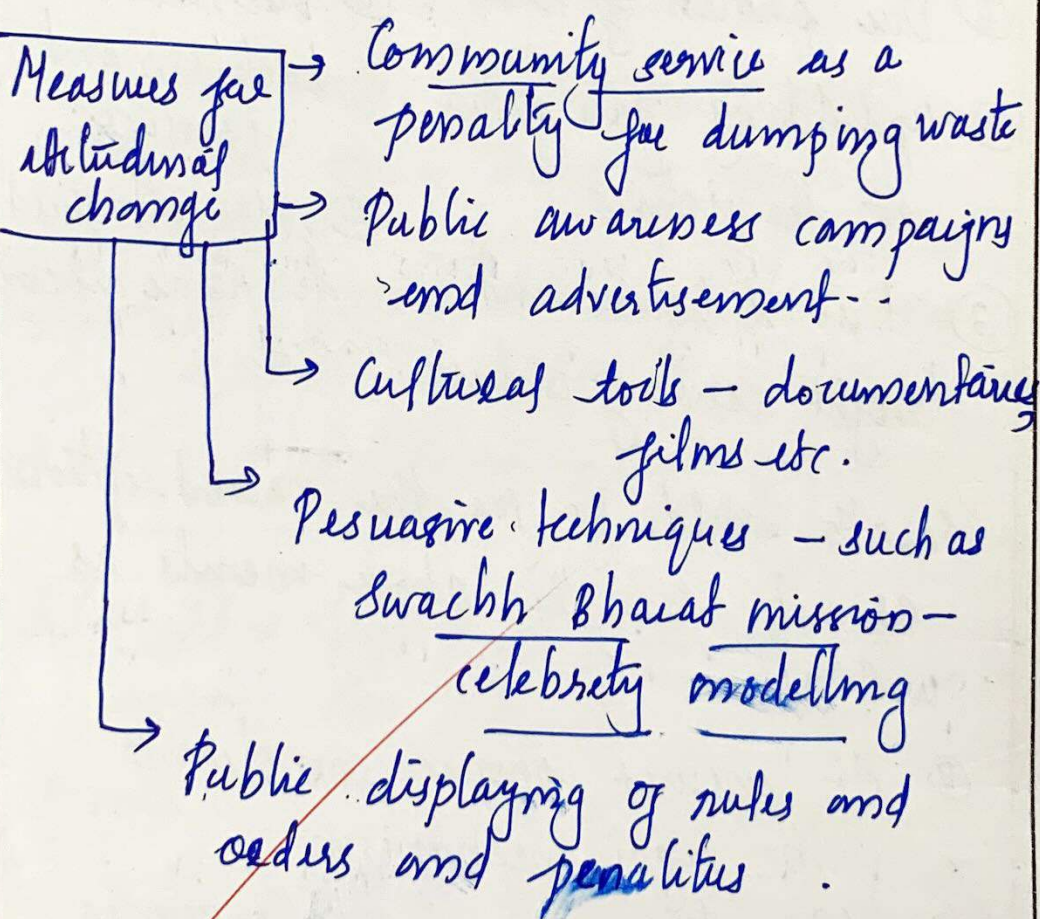 Measures for
attitudinal
change
→ Community service as a
penality for dumping waste
→ Public awareness campaigns
and advertisement..
→ Cultural tools – documentaries,
films etc.
→ Pesuasive techniques – such as
Swachh Bharat mission –
celebrety modelling
→ Public displaying of rules and
orders and penalities.